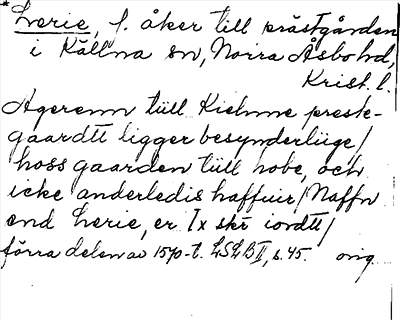 * Lerie, f. åker till prästgården
i Källna sn, Norra Åsbo hd,
Krist. l.
Ageren tiill Kielnne prest-
gaardtt ligger besynderliige/
hoss gaarden tiill hobe, och
icke anderledis haffuir/Naffn
end Lerie, er Ix skr iordtt/
förra delen av 1570-t. LSLB II, s. 45. orig